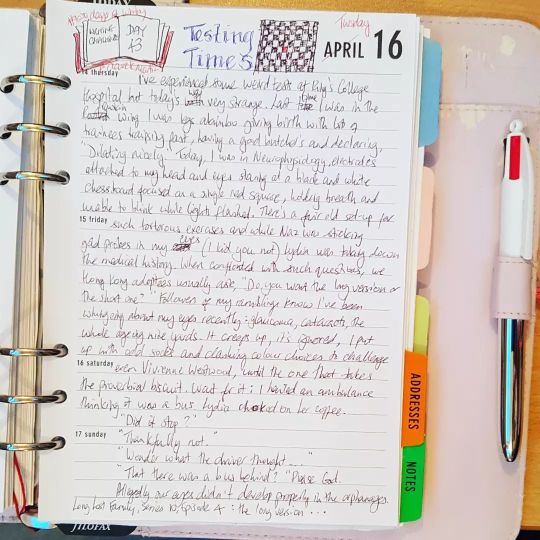 Tuesday
WRITING
CHALLENGE
DAY
43
Testing
Times
APRIL 16
thursday
I've experienced some weird tests at King's College
Hospital but today's was very strange. Last time I was in the
wing I was legs akimbo giving birth with lots of
trainees traipsing past, having a good butcher's and declaring,
"Dilating nicely." Today, I was in Neurophysiology, electrodes
attached to my head and eyes staring at a black and white
chessboard focused on a single red square, holding breath and
unable to blink while lights flashed. There's a fair old set-up for
15 friday
such tortorous exercises and while Naz was sticking
gold probes in my eyes (I kid you not) Lydia was taking down
the medical history. When confronted with such questions, we
Hong Kong adoptees usually ask, "Do you want the long version or
the short one?" Followers of my ramblings know I've been
whingeing about my eyes recently: glaucoma, cataracts, the
whole ageing nine yards. It creeps up, it's ignored, I put
up with odd socks and clashing colour choices to challenge
16 saturday
even Vivienne Westwood, until the one that takes
the proverbial biscuit. Wait for it: I hailed an ambulance
thinking it was a bus. Lydia choked on her coffee.
"Did it stop?"
17 sunday
"Thankfully not."
"Wonder what the driver thought..."
"That there was a bus behind?" "Praise God.
Allegedly our eyes didn't develop properly in the orphanages.
Long Lost Family, Series 10, Episode 4: the long version...
ADDRESSES
NOTES
FILOFAX